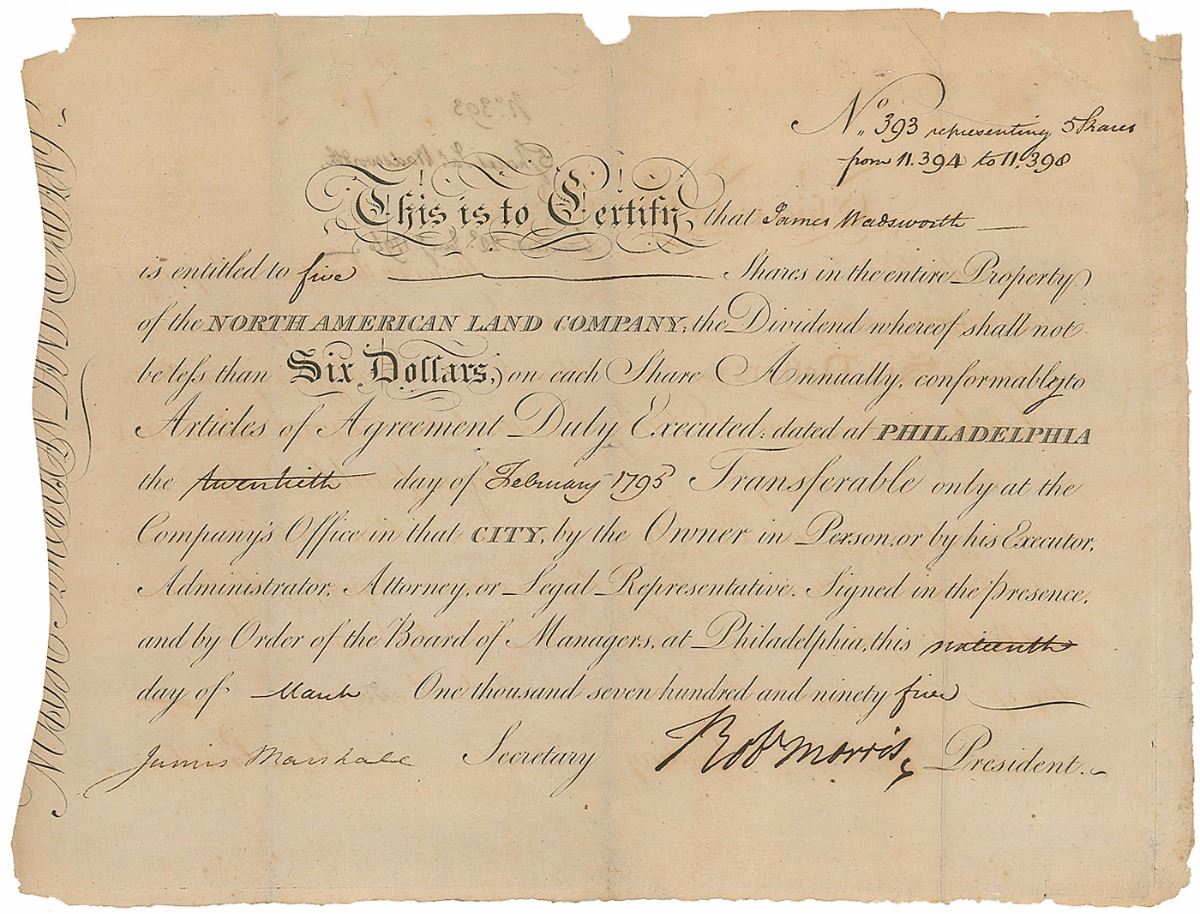 No. 393 representing 5 Shares
from 11.394 to 11.398
This is to Certify, that James Wadsworth
is entitled to five Shares in the entire Property
of the NORTH AMERICAN LAND COMPANY, the Dividend whereof shall not
be leſs than Six Dollars, on each Share Annually, conformably to
Articles of Agreement Duly Executed: dated at PHILADELPHIA
the twentieth day of February 1795 Transferable only at the
Company's Office in that CITY, by the Owner in Person, or by his Executor,
Administrator, Attorney, or Legal Representative. Signed in the presence,
and by Order of the Board of Managers, at Philadelphia, this sixteenth
day of March One thousand seven hundred and ninety five
James Marshall Secretary Rob Morris President.